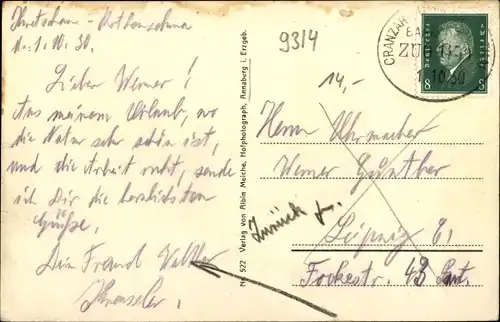 1.10.30.
Lieber Werner!
Aus meinem Urlaub, wo
die Natur sehr schön ist,
und die Arbeit ruht, sende
ich Dir die herzlichsten
Grüße.
Dein Freund Walther
9314
14,-
Nr. 522 Verlag von Albin Meiche, Hofphotograph, Annaberg i. Erzgeb.
CRANZAHL
ZUG
10 30
Deutsches Reich
8 8
Herrn Uhrmacher
Werner Günther
Zurück
Leipzig C1
Fockestr. 43 Part.